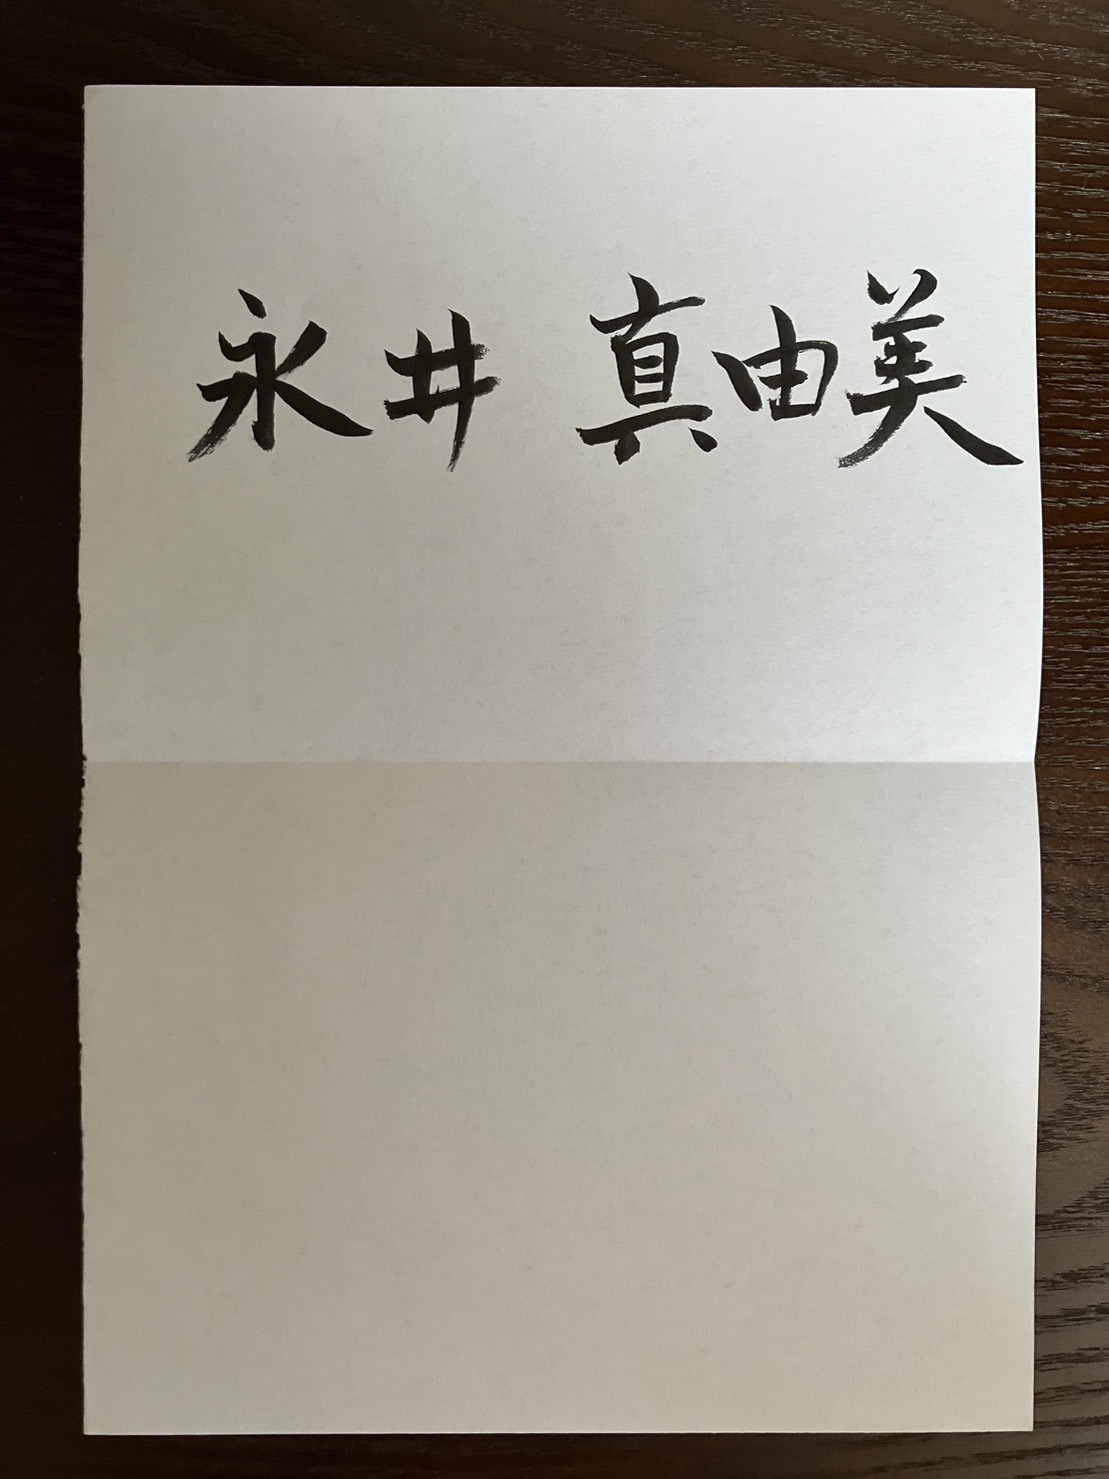 永井 真由美